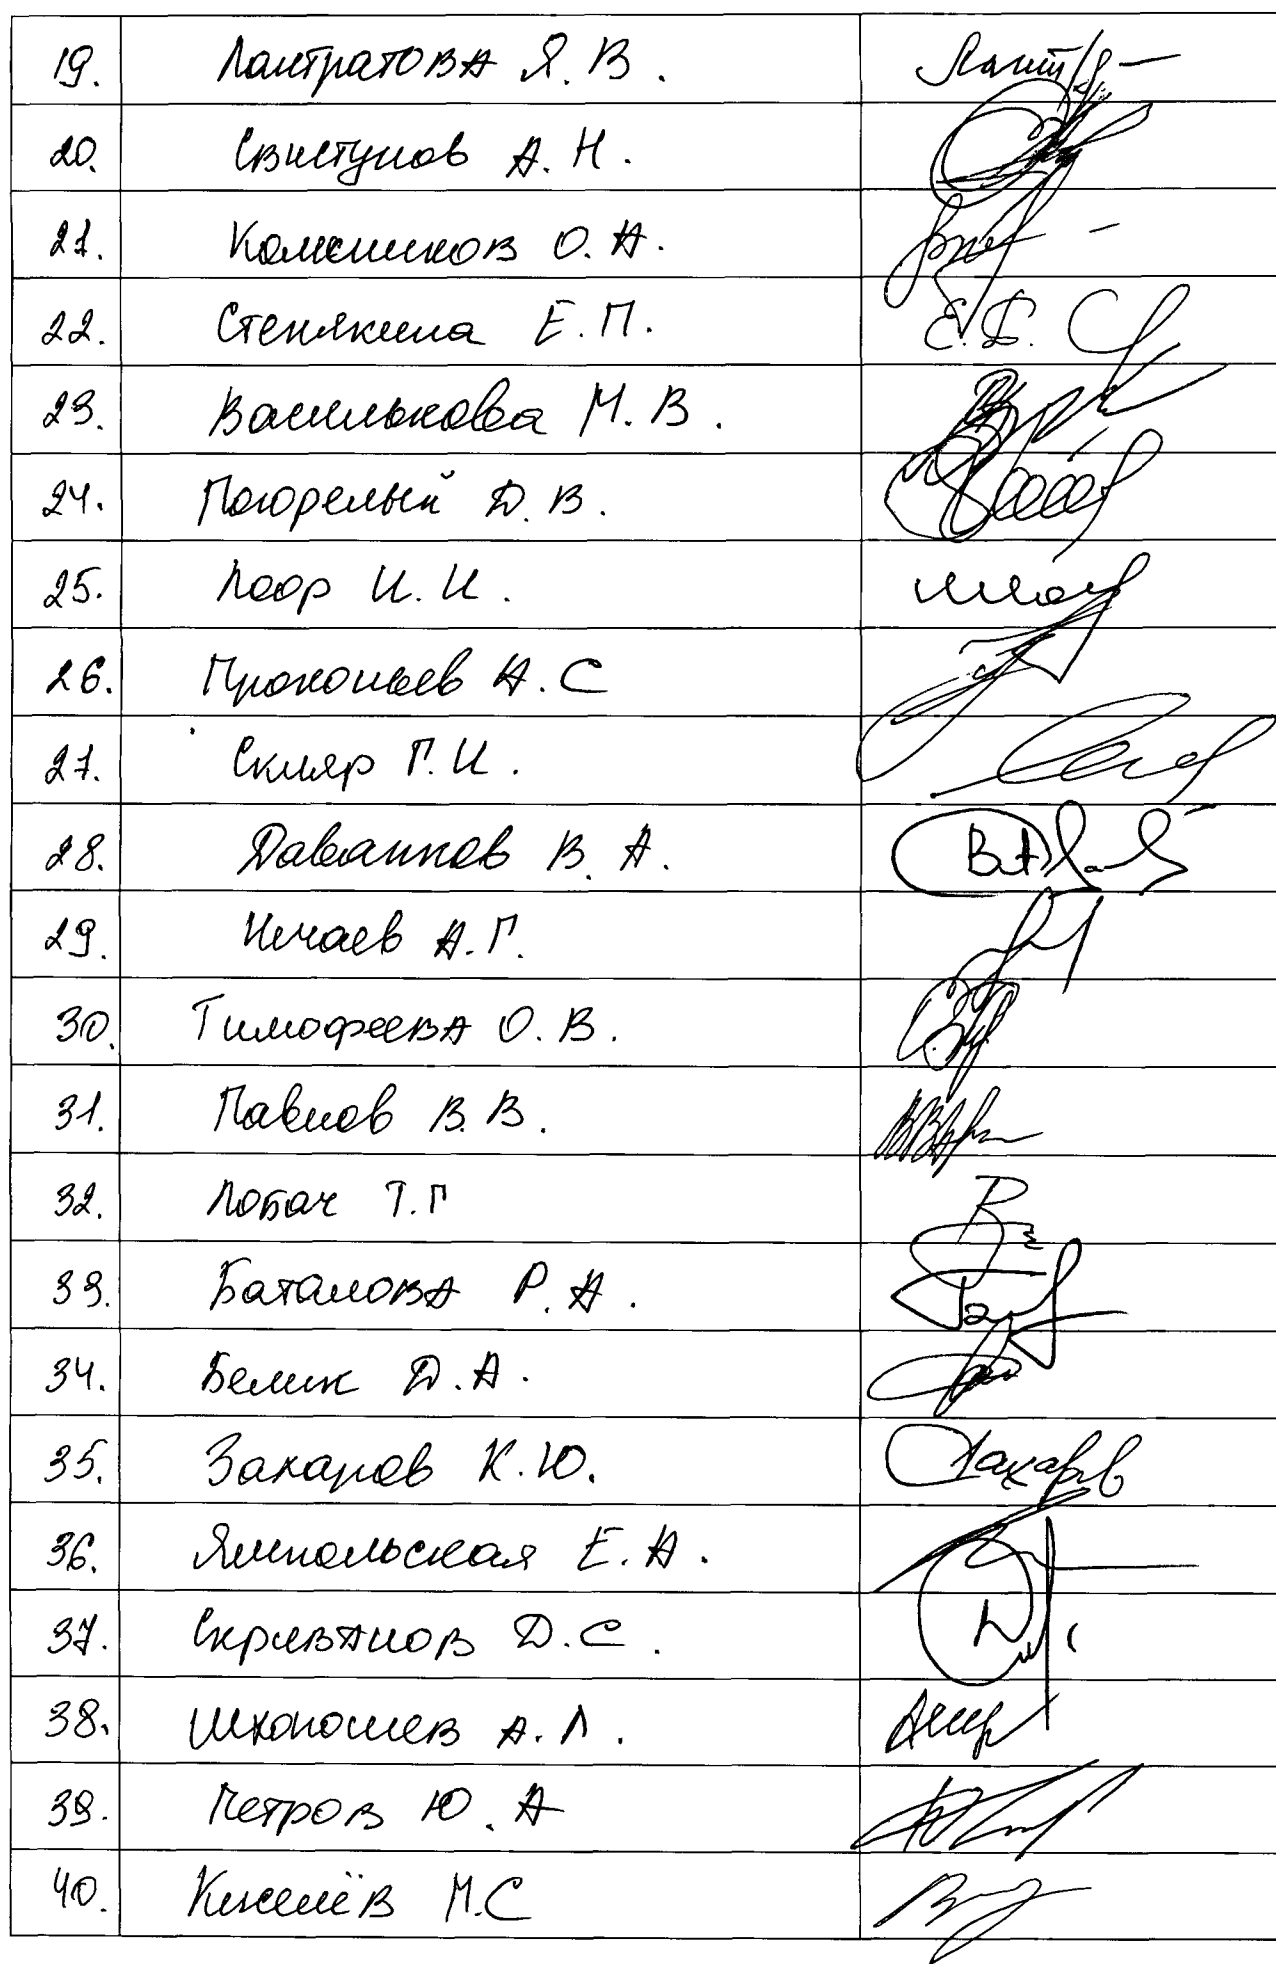 19. Лантратова Я. В.
20. Свистунов А. Н.
21. Колесников О. А.
22. Стенякина Е. П.
23. Василькова М. В.
24. Погорелый Д. В.
25. Лоор И. И.
26. Прокопьев А. С
27. Скляр Г. И.
28. Даванков В. А.
29. Нечаев А. Г.
30. Тимофеева О. В.
31. Павлов В. В.
32. Лобач Т. Г
33. Баталова Р. А.
34. Белик Д. А.
35. Захаров К. Ю. Захаров
36. Ямпольская Е. А.
37. Скриванов Д. С.
38. Шхагошев А. Л.
39. Петров Ю. А
40. Киселёв М. С